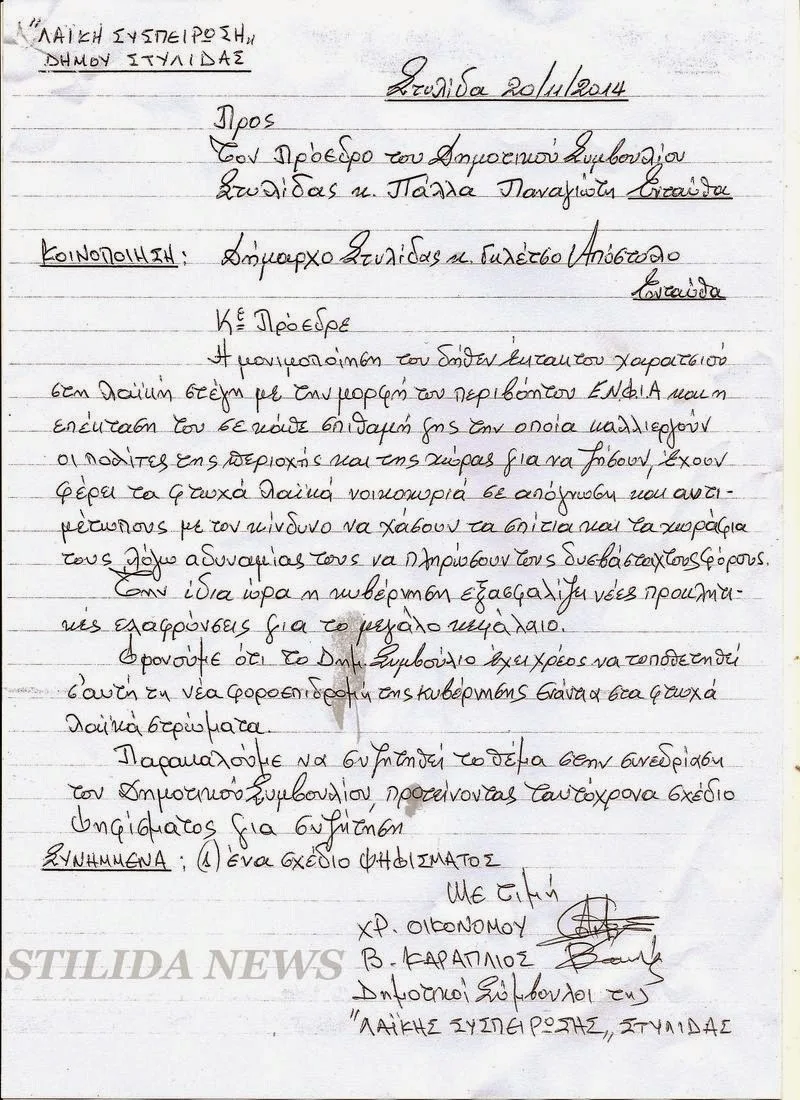 "ΛΑΪΚΗ ΣΥΣΠΕΙΡΩΣΗ„
ΔΗΜΟΥ ΣΤΥΛΙΔΑΣ
Στυλίδα 20/11/2014
Προς
Τον Πρόεδρο του Δημοτικού Συμβουλίου
Στυλίδας κ. Πάλλα Παναγιώτη Ενταύθα
ΚΟΙΝΟΠΟΙΗΣΗ: Δήμαρχο Στυλίδας κ. Γκλέτσο Απόστολο
Ενταύθα
Κε Πρόεδρε
Η μονιμοποίηση του δήθεν έκτακτου χαρατσιού
στη λαϊκή στέγη με την μορφή του περιβόητου ΕΝΦΙΑ και η
επέκταση του σε κάθε σπιθαμή γης την οποία καλλιεργούν
οι πολίτες της περιοχής και της χώρας για να ζήσουν, έχουν
φέρει τα φτωχά λαϊκά νοικοκυριά σε απόγνωση και αντι-
μέτωπους με τον κίνδυνο να χάσουν τα σπίτια και τα χωράφια
τους λόγω αδυναμίας τους να πληρώσουν τους δυσβάσταχτους φόρους.
Την ίδια ώρα η κυβέρνηση εξασφαλίζει νέες προκλητι-
κές ελαφρύνσεις για το μεγάλο κεφάλαιο.
Φρονούμε ότι το Δημ. Συμβούλιο έχει χρέος να τοποθετηθεί
σ'αυτή τη νέα φοροεπιδρομή της κυβέρνησης ενάντια στα φτωχά
λαϊκά στρώματα.
Παρακαλούμε να συζητηθεί το θέμα στην συνεδρίαση
του Δημοτικού Συμβουλίου, προτείνοντας ταυτόχρονα σχέδιο
ψηφίσματος για συζήτηση
ΣΥΝΗΜΜΕΝΑ: (1) ένα σχέδιο ΨΗΦΙΣΜΑΤΟΣ
Με τιμή
ΧΡ. ΟΙΚΟΝΟΜΟΥ
Β. ΚΑΡΑΠΛΙΟΣ
Δημοτικοί Σύμβουλοι της
"ΛΑΪΚΗΣ ΣΥΣΠΕΙΡΩΣΗΣ„ ΣΤΥΛΙΔΑΣ
STILIDA NEWS